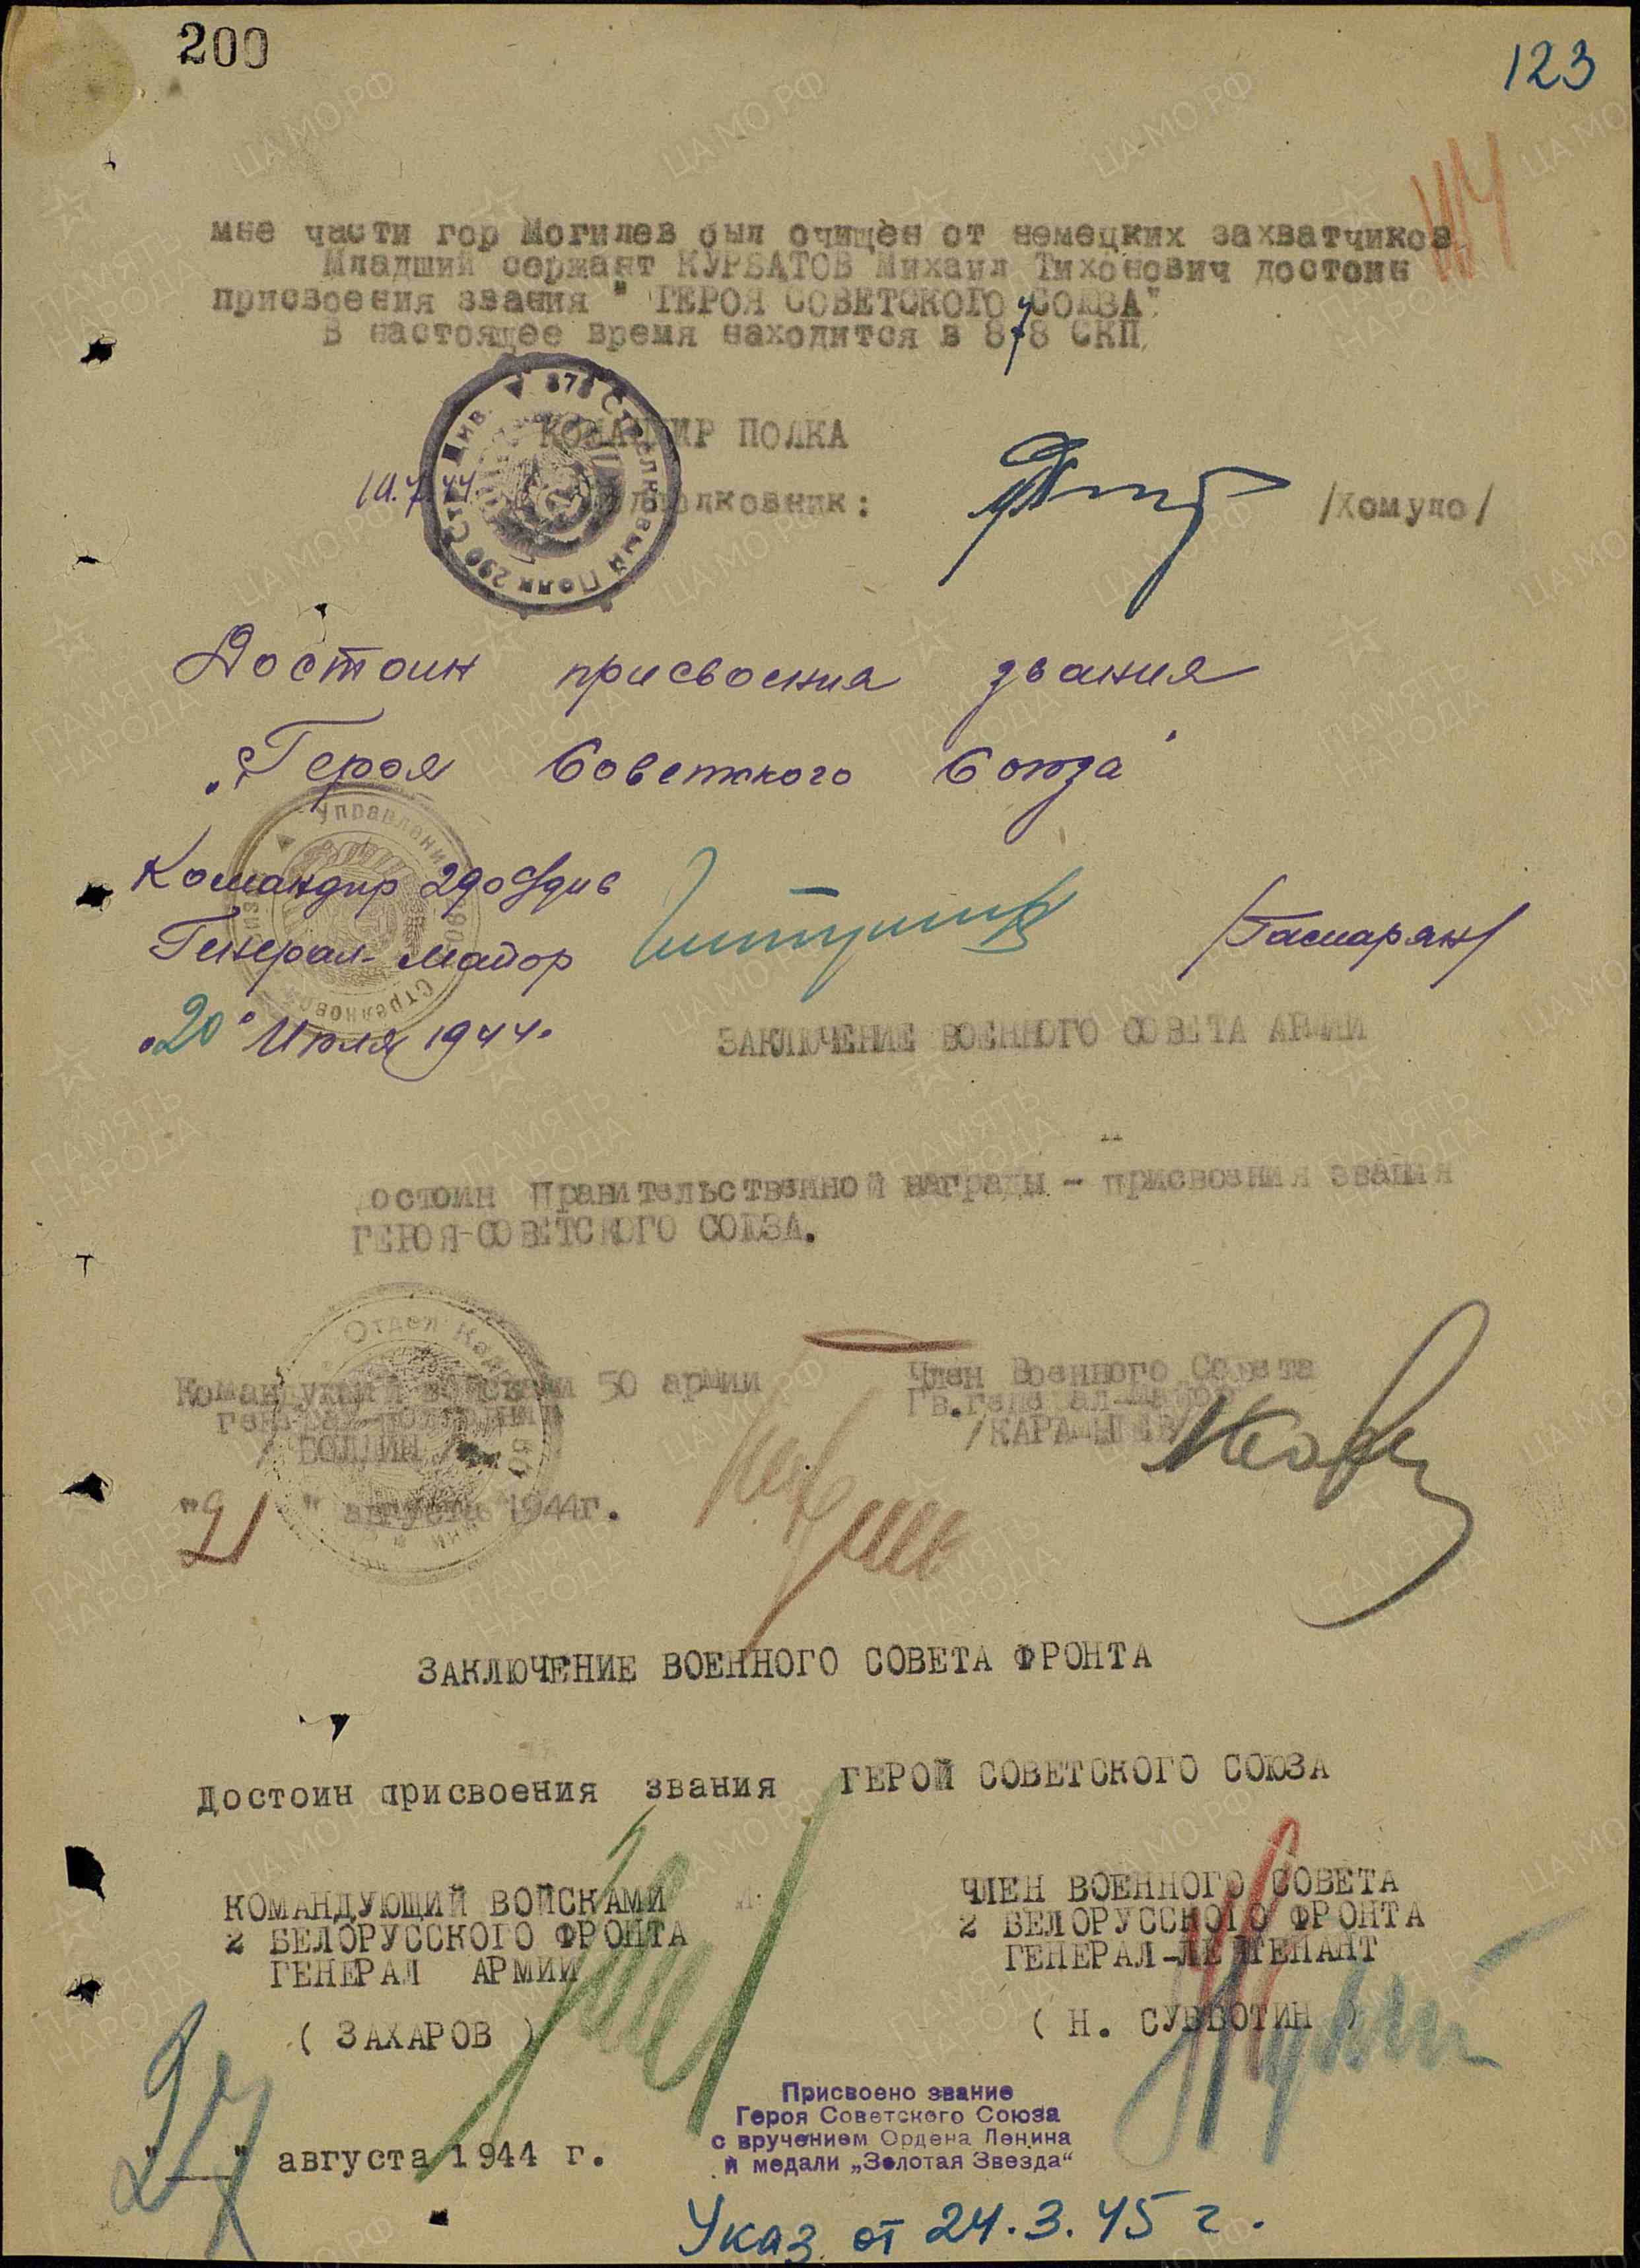 200
123
мне части гор Могилев был очищен от немецких захватчиков
Младший сержант КУРБАТОВ Михаил Тихонович достоин
присвоения звания " ГЕРОЯ СОВЕТСКОГО СОЮЗА"
В настоящее время находится в 878 СКП.
КОМАНДИР ПОЛКА
878 Стрелковый Полк 290 Стр. Див.
подполковник: /Хомуло/
Достоин присвоения звания
„Героя Советского Союза"
Командир 290 сдив
Генерал-майор /Гаспарян/
„20" Июля 1944.
ЗАКЛЮЧЕНИЕ ВОЕННОГО СОВЕТА АРМИИ
достоин Правительственной награды - присвоения звания
ГЕРОЯ СОВЕТСКОГО СОЮЗА.
Командующий войсками 50 армии
генерал-полковник
/ БОЛДИН /
"21" августа 1944г.
Член Военного Совета
Гв.генерал-майор
/КАРАМЫШЕВ/
ЗАКЛЮЧЕНИЕ ВОЕННОГО СОВЕТА ФРОНТА
Достоин присвоения звания ГЕРОЙ СОВЕТСКОГО СОЮЗА
КОМАНДУЮЩИЙ ВОЙСКАМИ
2 БЕЛОРУССКОГО ФРОНТА
ГЕНЕРАЛ АРМИИ
( ЗАХАРОВ )
ЧЛЕН ВОЕННОГО СОВЕТА
2 БЕЛОРУССКОГО ФРОНТА
ГЕНЕРАЛ-ЛЕЙТЕНАНТ
( Н. СУББОТИН )
"27" августа 1944 г.
Присвоено звание
Героя Советского Союза
с вручением Ордена Ленина
и медали „Золотая Звезда"
Указ от 24.3.45 г.
ЦА МО РФ
ПАМЯТЬ
НАРОДА